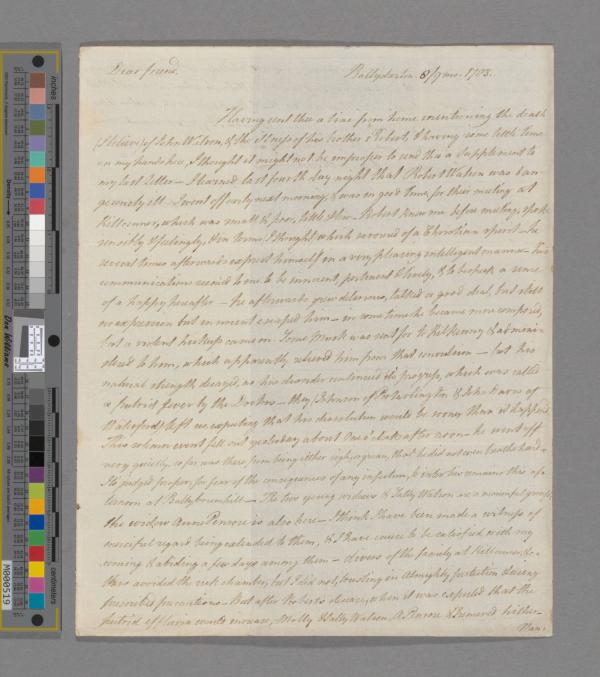 Dear friend. Ballydarton 8/7mo. 1783.
Having sent thee a line from home mentioning the death
of John Watson, & the illness of his brother Robert, & having some little time
on my hands here, I thought it might not be improper to send thee a Supplement to
my last Letter — I learned last fourth day night that Robert Watson was dan-
gerously ill. I went off early next morning, & was in good time for their meeting at
Kilconner, which was small & poor, little else. Robert knew me before meeting, spoke
sensibly & feelingly, & in terms I thought which savoured of a Christian spirit — he
several times afterwards exprest himself in a very pleasing intelligent manner — his
communications seemed to me to be innocent, pertinent & lively, & to bespeak a sense
of a happy hereafter — he afterwards grew delirious, talked a good deal, but
no expression but an innocent escaped him — in some time he became more composed,
but a violent hickup came on. Some Musk was sent for to Kilkenny & admini-
stered to him, which apparently relieved him from that convulsion — but his
natural strength decayed, as his disorder continued its progress, which was called
a putrid fever by the Doctors — they, Johnson of Portarlington & John of
Waterford left us, expecting that his dissolution would be sooner than it happened
This solemn event fell out yesterday about One o'clock after noon — he went off
very quietly, so far was there from being either sigh or groan, that he did not even breathe hard —
It's judged proper for fear of the consequences of any infection, to inter his remains this af-
ternoon at Ballybrumhill. — The two young widows & Sally Watson are a mournful group,
the widow Anne Penrose is also here — I think I have been made a witness of
merciful regard being extended to them, & I have cause to be satisfied with my
coming & abiding a few days among them — divers of the family at Kilconner, &c.
have avoided the sick chamber, but I did not, trusting in Almighty protection & using
prescribed precautions — But after Robert's decease, when it was expected that the
putrid effluvia would increase, Molly & Sally Watson, A. Penrose & I removed hither —